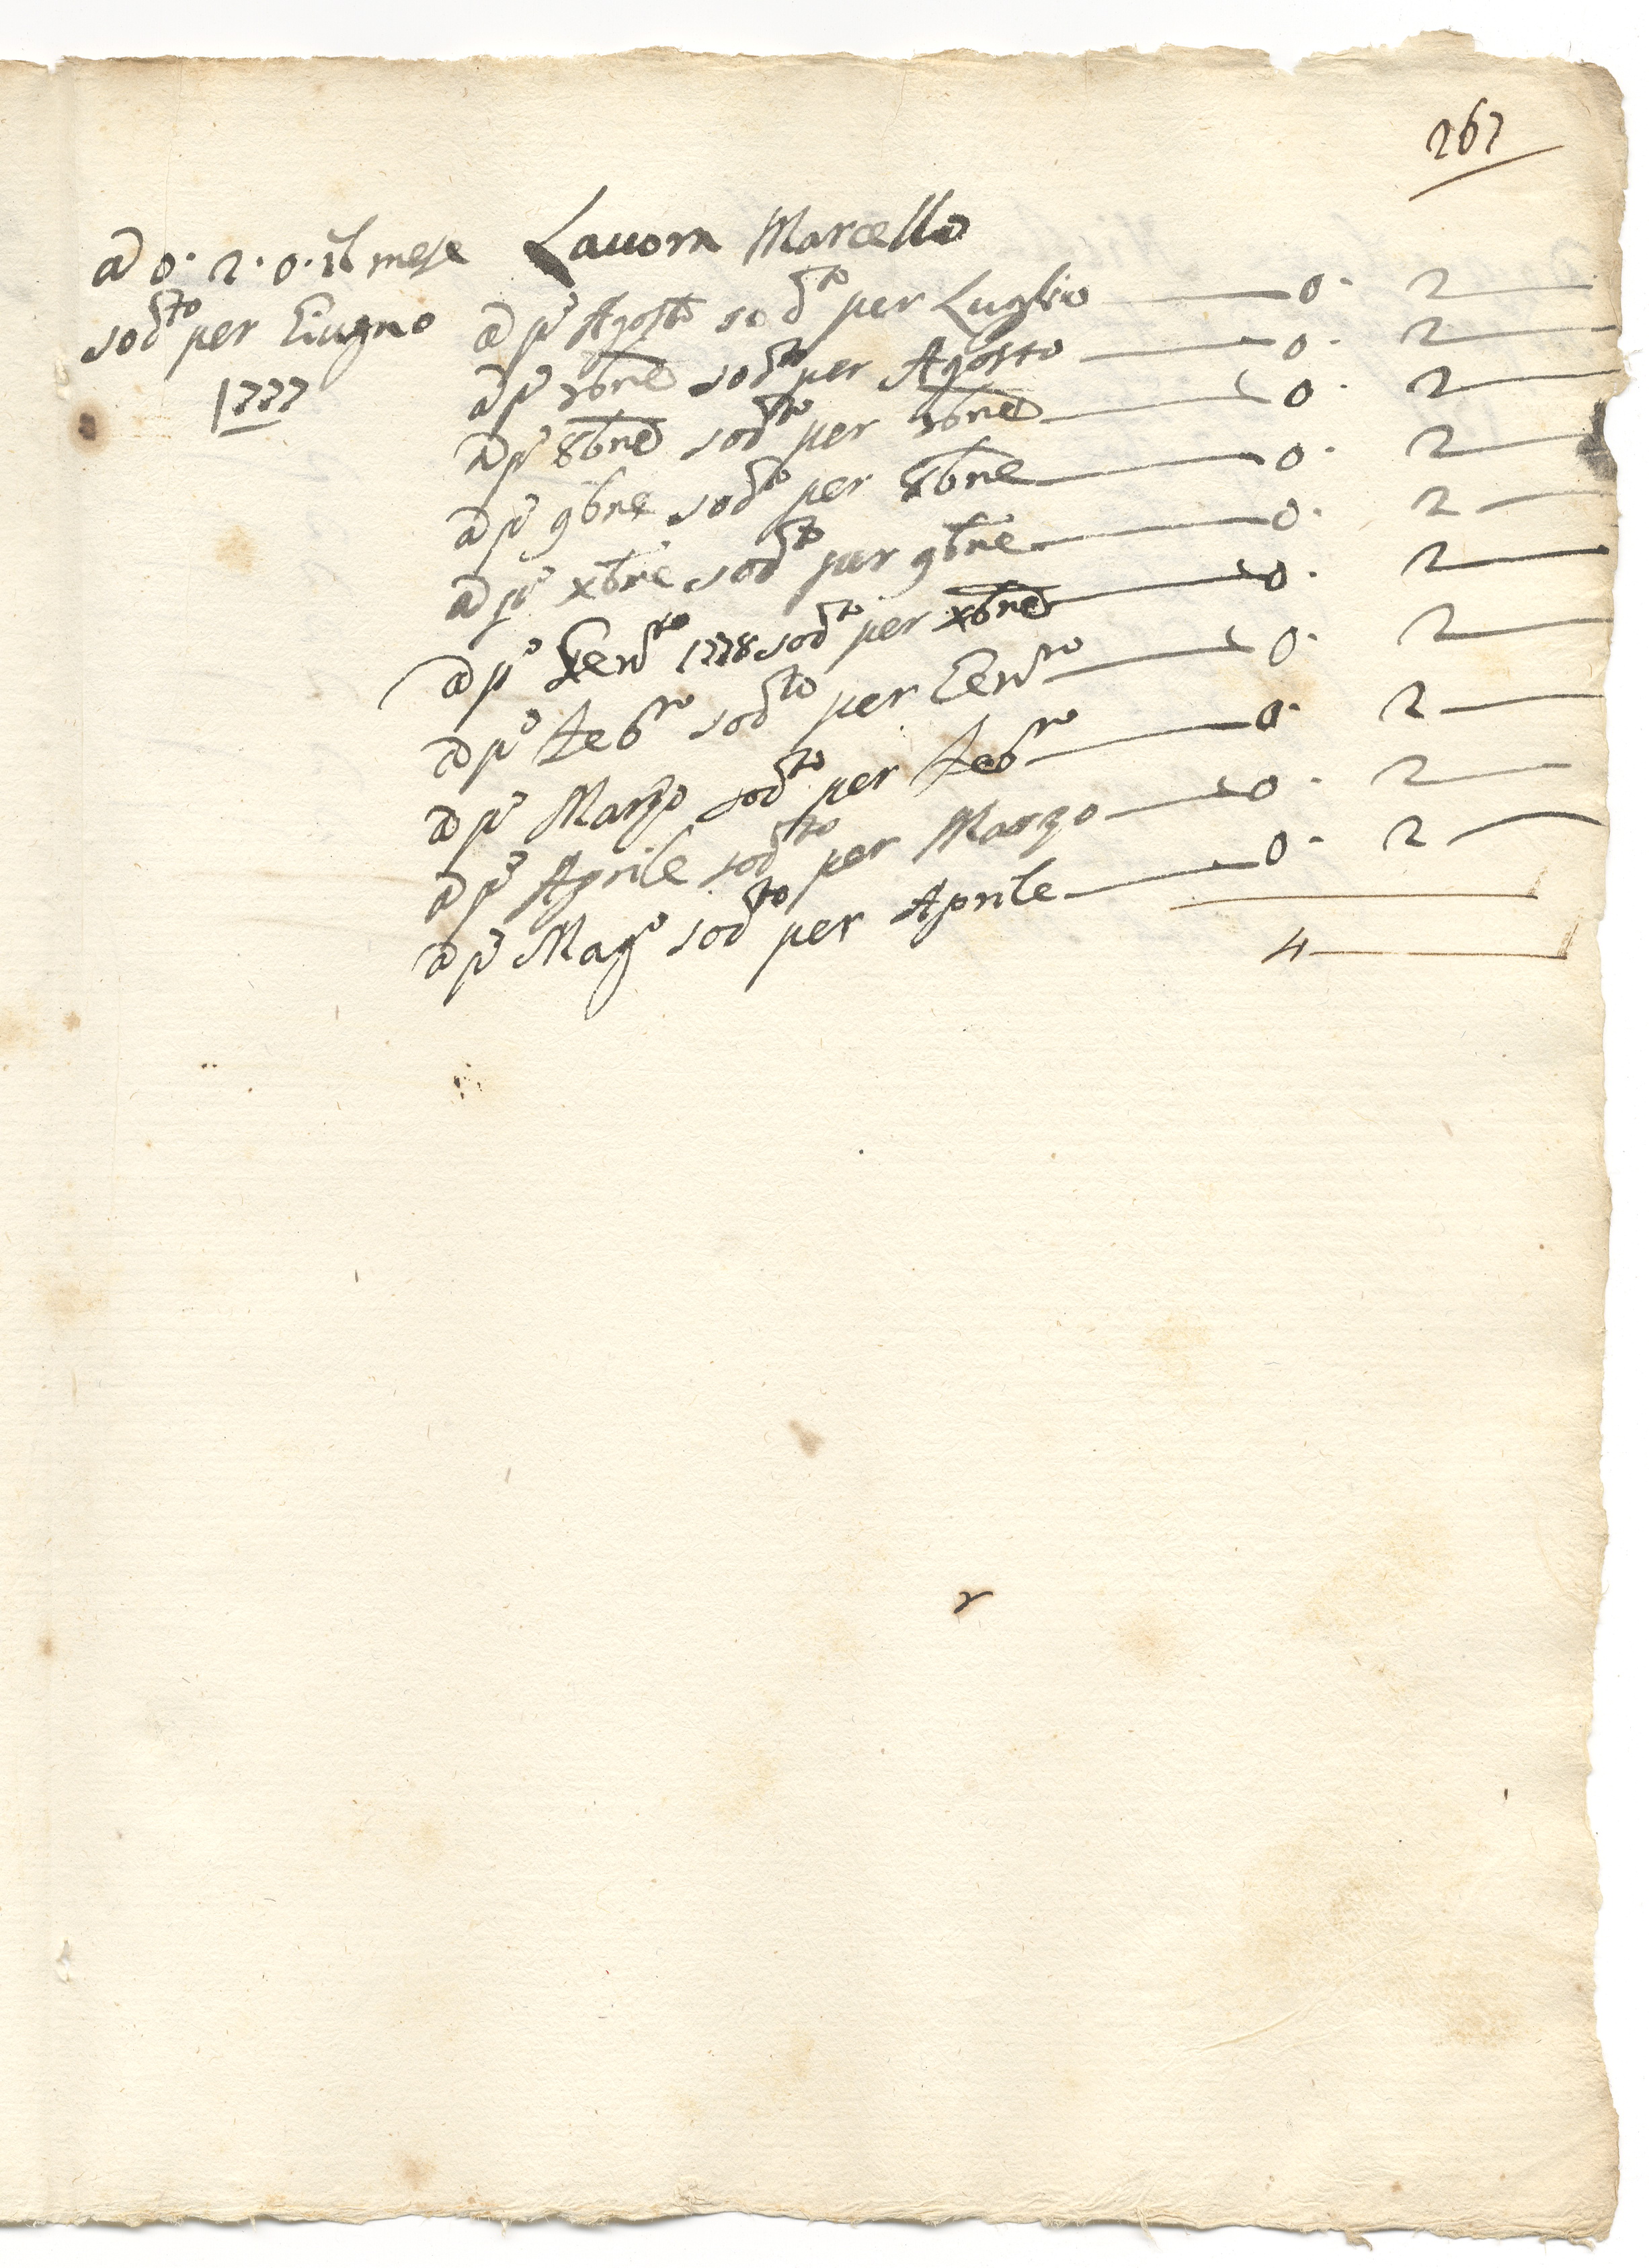 267
à 0. 2. 0. il mese
sodto per Giugno
1777
Lavora Marcello
à po Agosto sodto per Luglio 0. 2
à po 7bre sodto per Agosto 0. 2
à po 8bre sodto per 7bre 0. 2
à po 9bre sodto per 8bre 0. 2
à po xbre sodto per 9bre 0. 2
à po Genro 1778 sodto per xbre 0. 2
à po Febro sodto per Genro 0. 2
à po Marzo sodto per Febro 0. 2
à po Aprile sodto per Marzo 0. 2
à po Mago sodto per Aprile 0. 2
4